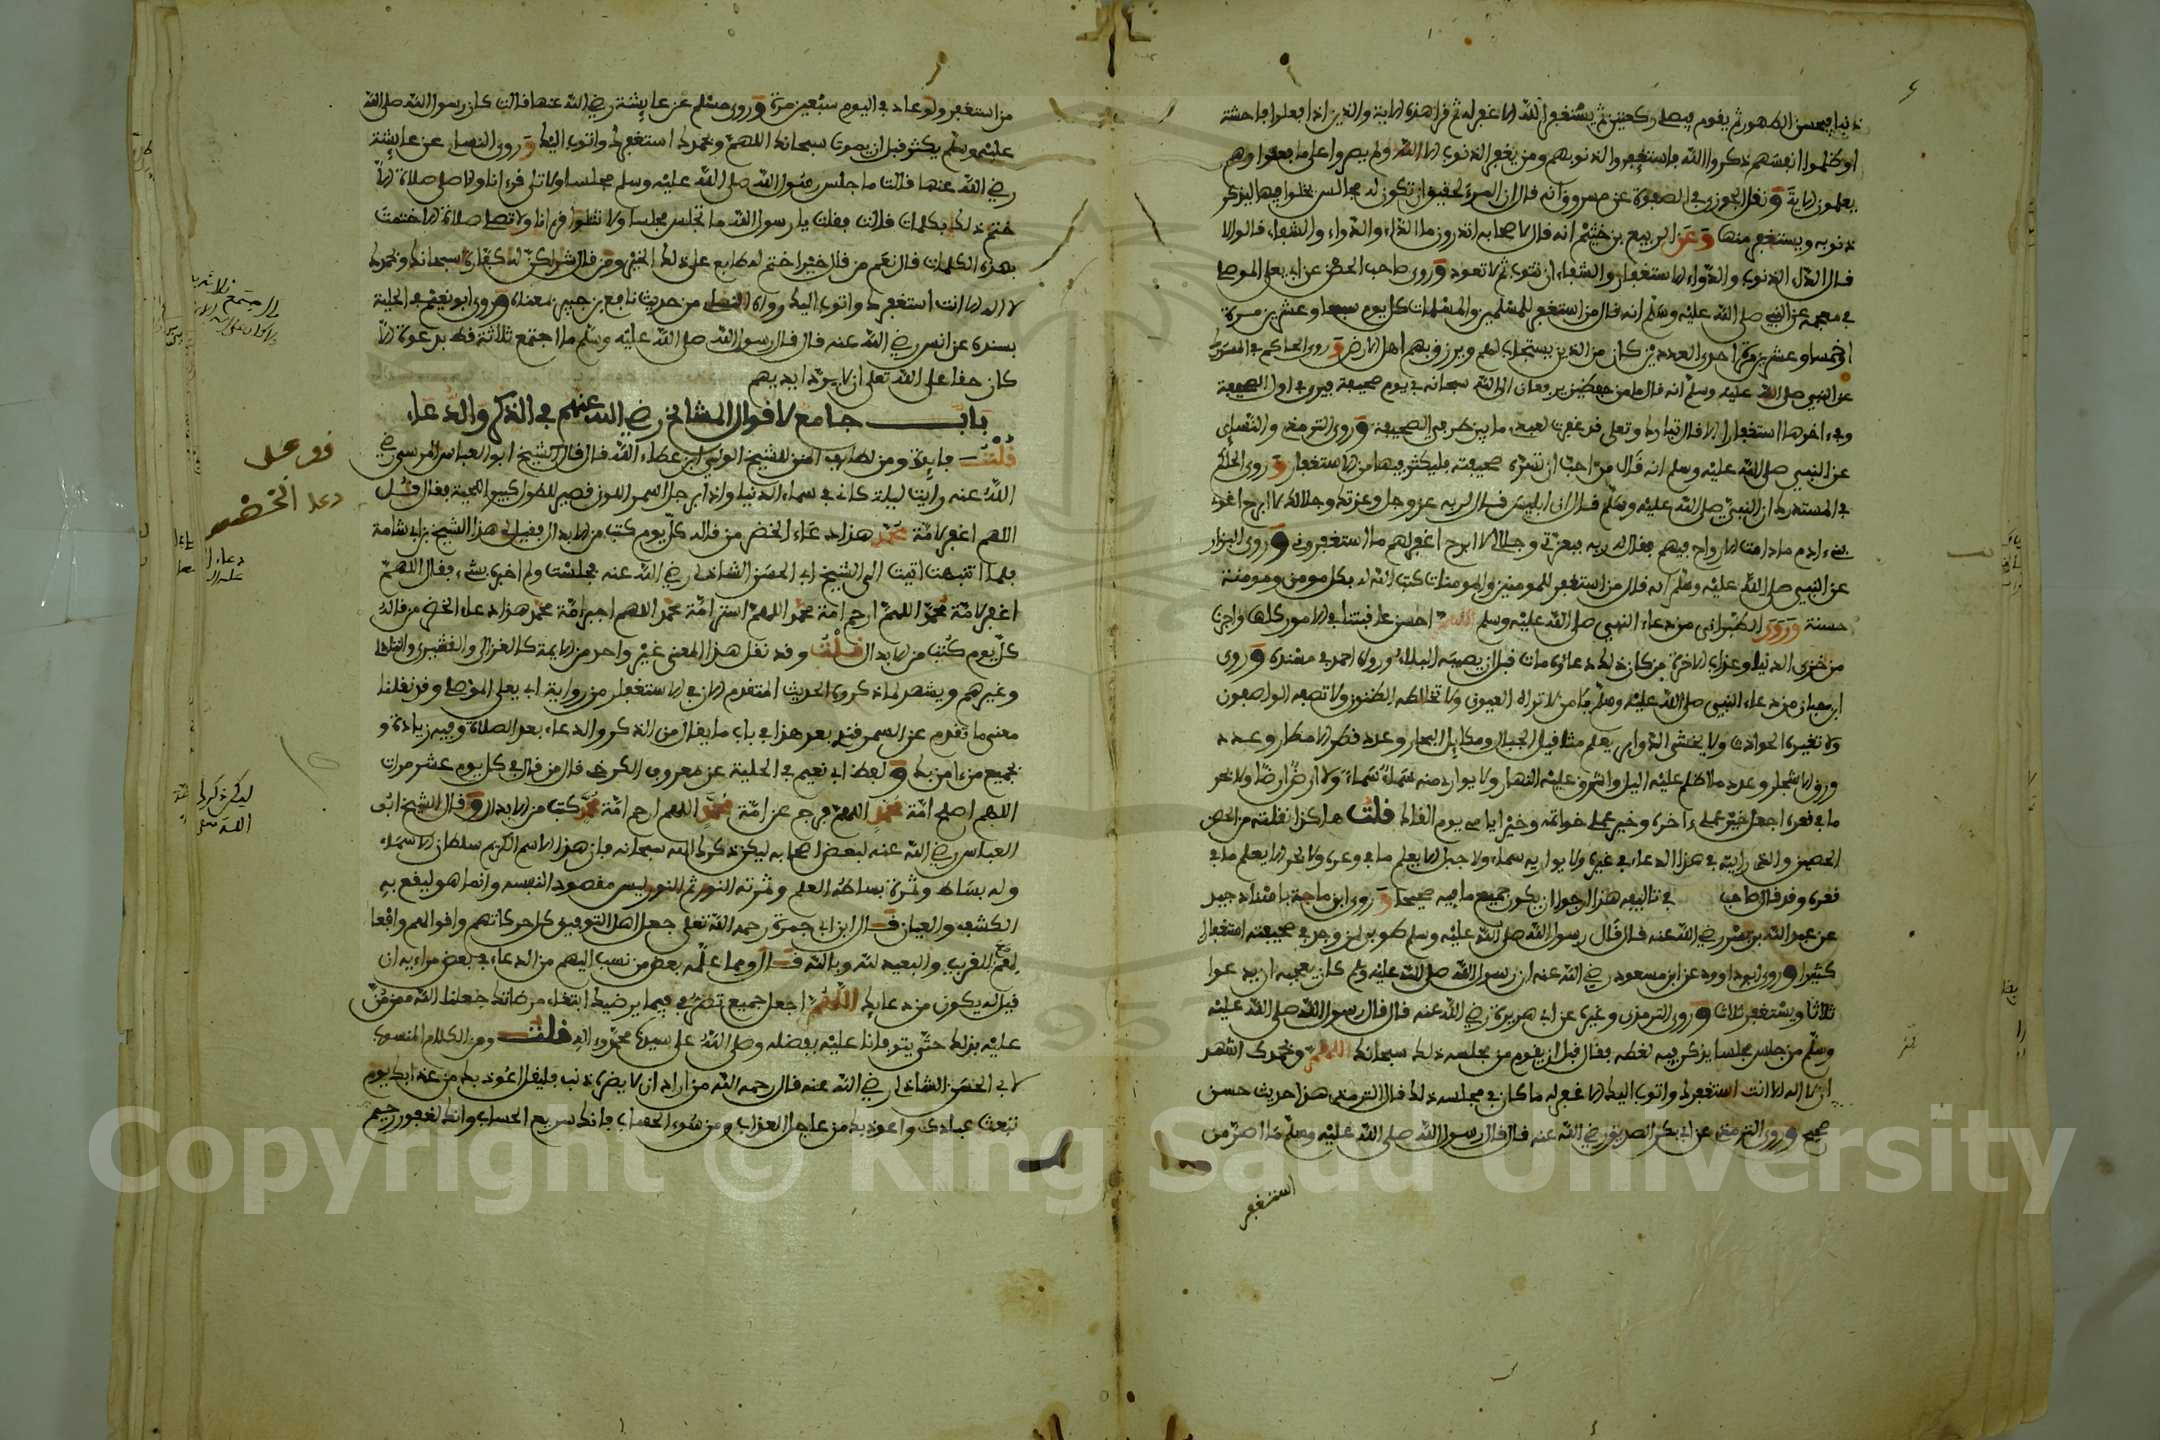 ذنبا فيحسن الطهور ثم يقوم فيصلي ركعتين ثم يستغفر الله الا غفر له ثم قرأ هذه الاية والذين اذا فعلوا فاحشة
او ظلموا انفسهم ذكروا الله فاستغفروا لذنوبهم ومن يغفر الذنوب الا الله ولم يصروا على ما فعلوا وهم
يعلمون الاية ونقل الجوزي في الصفوة عن مسروق انه قال ان المرء لحقيق ان تكون له مجالس يخلوا فيها يذكر
ذنوبه ويستغفر منها وعن الربيع بن خثيم انه قال لاصحابه اتدرون ما الداء والدواء والشفاء قالوا لا
قال الداء الذنوب والدواء الاستغفار والشفاء ان تتوب ثم لا تعود وروى صاحب الحصن عن ابي يعلى الموصلي
في معجمه عن النبي صلى الله عليه وسلم انه قال من استغفر للمسلمين والمسلمات كل يوم سبعا وعشرين مرة
او خمسا وعشرين مرة احدى العددين كان من الذين يستجاب لهم ويرزق بهم اهل الارض وروى الحاكم في المستدرك
عن النبي صلى الله عليه وسلم انه قال ما من حفظين يرفعان الى الله سبحانه في يوم صحيفة فيرى في اول الصحيفة
وفي اخرها استغفارا الا قال تبارك وتعلى قد غفرت لعبدي ما بين طرفي الصحيفة وروى الترمذي والنسائي
عن النبي صلى الله عليه وسلم انه قال من احب ان تسره صحيفته فليكثر فيها من الاستغفار وروى الحاكم
في المستدرك ان النبي صلى الله عليه وسلم قال ان ابليس قال لربه عز وجل وعزتك وجلالك لا ابرح اغوي
بني ءادم ما دامت الارواح فيهم فقال له ربه فبعزتي وجلالي لا ابرح اغفر لهم ما استغفروني وروى البزار
عن النبي صلى الله عليه وسلم انه قال من استغفر للمومنين والمومنات كتب الله له بكل مومن ومومنة
حسنة وروى الطبراني من دعاء النبي صلى الله عليه وسلم اللهم احسن عاقبتنا في الامور كلها واجرنا
من خزي الدنيا وعذاب الاخرة من كان ذلك دعاؤه مات قبل ان يصيبه البلاء ورواه احمد في مسنده وروى
ابن حبان من دعاء النبي صلى الله عليه وسلم يا من لا تراه العيون ولا تخالطه الظنون ولا تصفه الواصفون
ولا تغيره الحوادث ولا يخشى الدواير يعلم مثاقيل الجبال ومكاييل البحار وعدد قطر الامطار وعدد
ورق الاشجار وعدد ما اظلم عليه اليل واشرق عليه النهار ولا يوارى منه سماء سماء ولا ارض ارضا ولا بحر
ما في قعره اجعل خير عملي ءاخره وخير عملي خواتمه وخير ايامي يوم القاك قلت هاكذا نقلته من الحصن
الحصين والذي رايته في هذا الدعاء في غيره ولا يواريه سماء ولا جبل الا يعلم ما في وعره ولا بحر الا يعلم ما في
قعره وقد قال صاحب في تاليفه هذا ارجوا ان يكون جميع ما فيه صحيحا وروى ابن ماجة باسناد جيد
عن عبد الله بن بسر رضي الله عنه قال قال رسول الله صلى الله عليه وسلم طوبى لمن وجد في صحيفته استغفارا
كثيرا وروى ابو داوود عن ابن مسعود رضي الله عنه ان رسول الله صلى الله عليه وسلم كان يعجبه ان يدعوا
ثلاثا ويستغفر ثلاثا وروى الترمذي وغيره عن ابي هريرة رضي الله عنه قال قال رسول الله صلى الله عليه
وسلم من جلس مجلسا يذكر فيه لغطه فقال قبل ان يقوم من مجلسه ذلك سبحانك اللهم وبحمدك اشهد
ان لا اله الا انت استغفرك واتوب اليك الا غفر له ما كان في مجلسه ذلك قال الترمذي هذا حديث حسن
صحيح وروى الترمذي عن ابي بكر الصديق رضي الله عنه قال قال رسول الله صلى الله عليه وسلم ما اصر من
استغفر
من استغفر ولو عاد في اليوم سبعين مرة وروى مسلم عن عايشة رضي الله عنها قالت كان رسول الله صلى الله
عليه وسلم يكثر قبل ان يموت سبحانك اللهم وبحمدك استغفرك واتوب اليك وروى النسائي عن عايشة
رضي الله عنها قالت ما جلس رسول الله صلى الله عليه وسلم مجلسا ولا تلى قرءانا ولا صلى صلاة الا
ختم ذلك بكلمات قالت فقلت يا رسول الله ما تجلس مجلسا ولا تتلوا قرءانا ولا تصلي صلاة الا ختمت
بهذه الكلمات قال نعم من قال خيرا ختم له طابع على ذلك الخير ومن قال شرا كن له كفارة سبحانك وبحمدك
لا اله الا انت استغفرك واتوب اليك رواه النسائي من حديث نافع بن جبير بمعناه وروى ابو نعيم في الحلية
بسنده عن انس رضي الله عنه قال قال رسول الله صلى الله عليه وسلم ما اجتمع ثلاثة قط بدعوة الا
كان حقا على الله تعلى ان لا يرد ايديهم
باب جامع لاقوال المشايخ رضي الله عنهم في الذكر والدعاء
قلت فايدة ومن لطايف المنن للشيخ الولي ابن عطاء الله قال قال الشيخ ابو العباس المرسي رضي
الله عنه رايت ليلة كاني في سماء الدنيا واذا برجل اسمر اللون قصير الطول كبير اللحية فقال قل
اللهم اغفر لامة محمد هذا دعاء الخضر من قاله كل يوم كتب من الابدال فقيل لي هذا الشيخ بن ابي شامة
فلما انتبهت اتيت الى الشيخ ابي الحسن الشاذلي رضي الله عنه فجلست ولم اخبره بشيء فقال اللهم
اغفر لامة محمد اللهم ارحم امة محمد اللهم استر امة محمد اللهم اجبر امة محمد هذا دعاء الخضر من قاله
كل يوم كتب من الابدال قلت وقد نقل هذا المعنى غير واحد من الايمة كالغزالي والقشيري
وغيرهم ويشهد لما ذكروه الحديث المتقدم الان في الاستغفار من رواية ابي يعلى الموصلي وقد نقلنا
معنى ما تقدم عن السمرقندي بعد هذا في باب ما يقال من الذكر والدعاء بعد الصلاة وفيه زيادة و
لجميع من ءامن بك ولفظ ابي نعيم في الحلية عن معروف الكرخي قال من قال في كل يوم عشر مرات
اللهم اصلح امة محمد اللهم فرج عن امة محمد اللهم ارحم امة محمد كتب من الابدال وقال الشيخ ابو
العباس رضي الله عنه لبعض اصحابه ليكن ذكرك الله سبحانه فان هذا الاسم الكريم سلطان الاسماء
وله بساط وثمرة بساطه العلم وثمرته النور ثم النور ليس مقصود النفسه وانما هو ليقع به
الكشف والعيان قال ابن ابي جمرة رحمه الله تعلى جعل اهل التوفيق كل حركاتهم واقوالهم وافعا
لهم للقريب والبعيد لله وبالله قال ومما علمه بعض من نسب اليهم من الدعاء في بعض مراءيه ان
قيل له يكون من دعايك اللهم اجعل جميع تصرفي فيما يرضيك ابتغاء مرضاتك جعلنا الله ممن من
عليه بذلك حتى يتوفانا عليه بفضله وصلى الله على سيدنا محمد وءاله قلت ومن الكلام المنسوب
لابي الحسن الشاذلي رضي الله عنه قال رحمه الله من اراد ان لا يضره ذنب فليقل اعوذ بك من عذابك يوم
تبعث عبادك واعوذ بك من عاجل العذاب ومن سوء الحساب فانك سريع الحساب وانك لغفور رحيم
قف على
دعاء الخضر
ليكن ذكرك
الله
Copyright © King Saud University